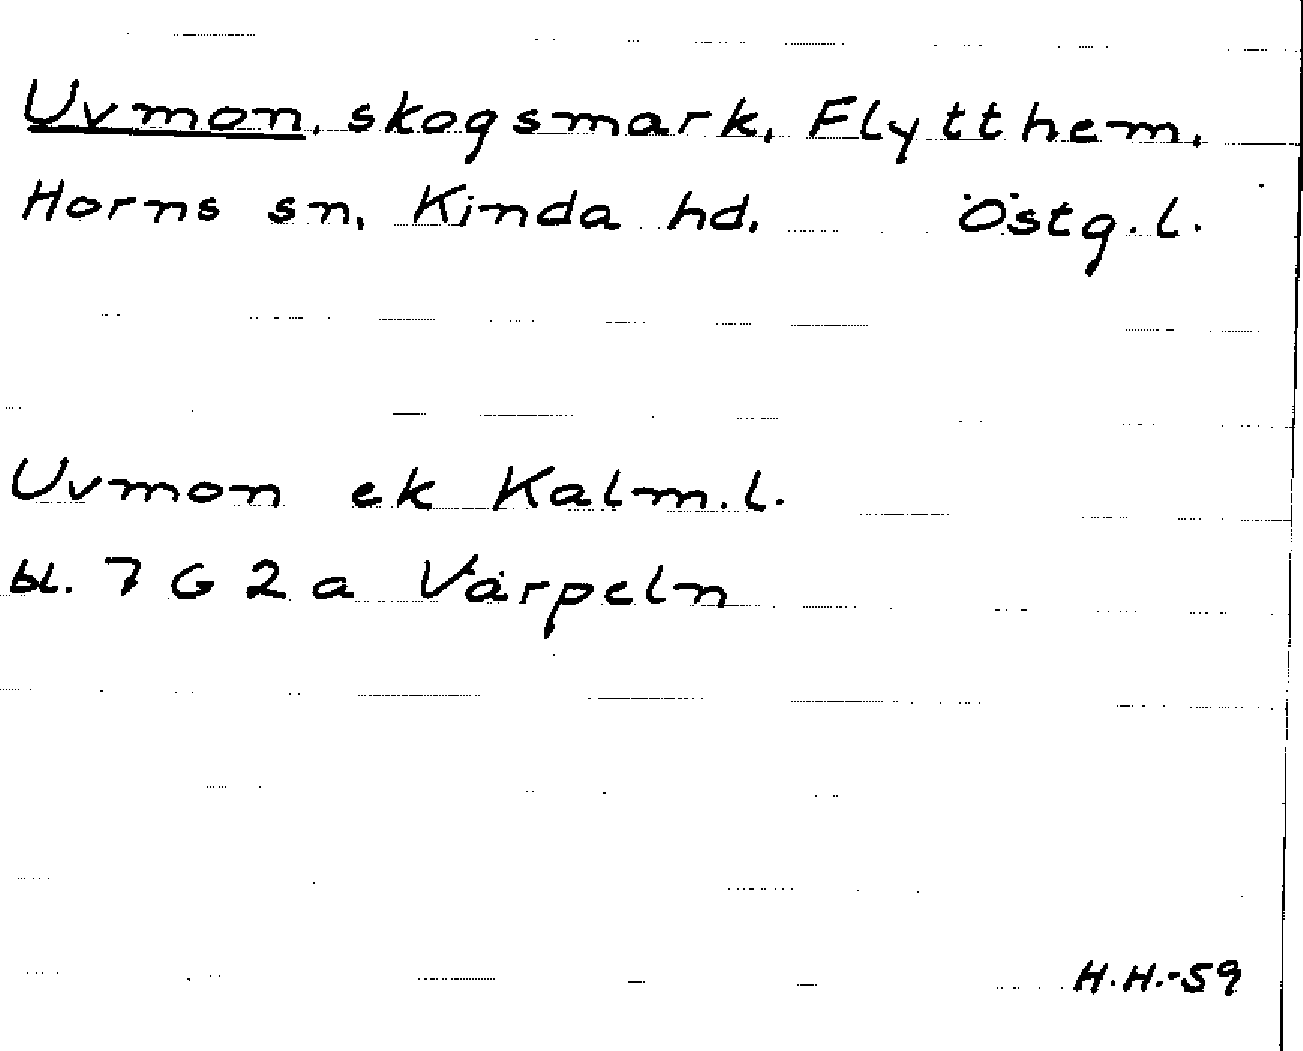 Uvmon, skogsmark, Flytthem,
Horns sn, Kinda hd. Östg.l.
Uvmon ek Kalm.l.
bl. 7 G 2 a Värpeln
H.H.-59